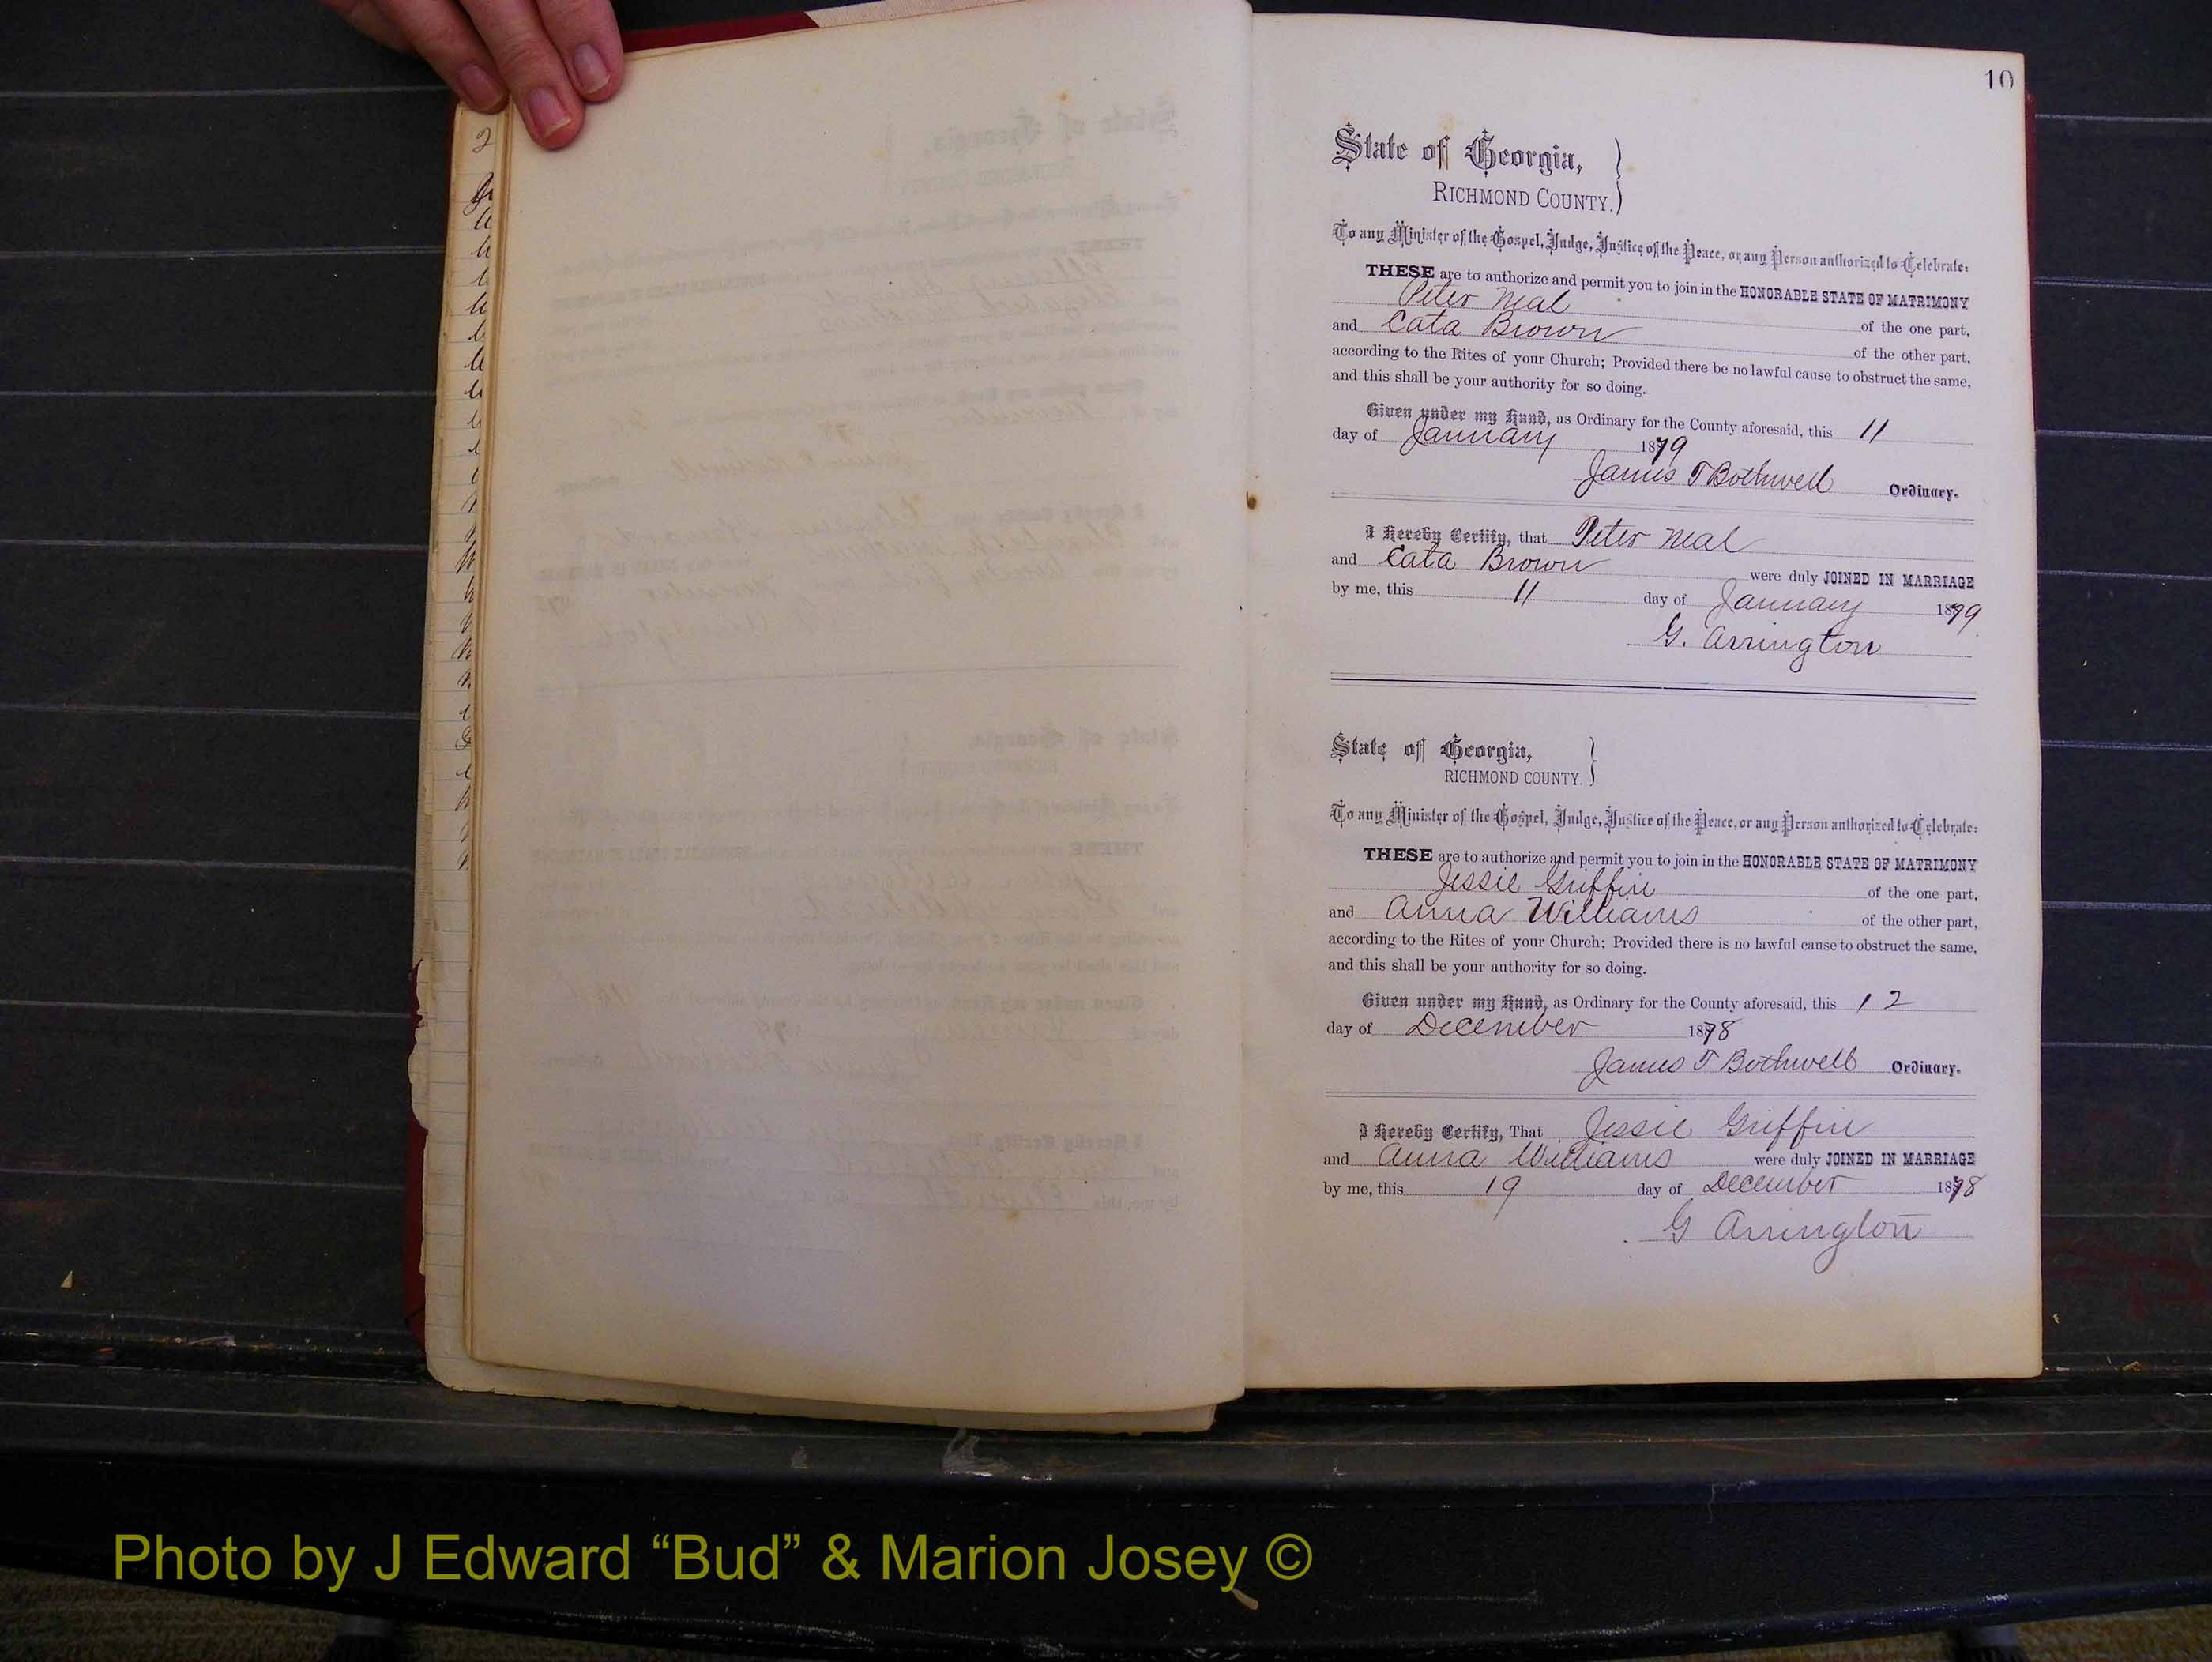 10
State of Georgia, }
RICHMOND COUNTY. }
To any Minister of the Gospel, Judge, Justice of the Peace, or any Person authorized to Celebrate:
THESE are to authorize and permit you to join in the HONORABLE STATE OF MATRIMONY
Peter Neal of the one part,
and Cata Brown of the other part,
according to the Rites of your Church; Provided there be no lawful cause to obstruct the same,
and this shall be your authority for so doing.
Given under my Hand, as Ordinary for the County aforesaid, this 11
day of January 1879
James T Bothwell Ordinary.
I Hereby Certify, that Peter Neal
and Cata Brown were duly JOINED IN MARRIAGE
by me, this 11 day of January 1879
G. Arrington
State of Georgia, }
RICHMOND COUNTY. }
To any Minister of the Gospel, Judge, Justice of the Peace, or any Person authorized to Celebrate:
THESE are to authorize and permit you to join in the HONORABLE STATE OF MATRIMONY
Jessie Griffin of the one part,
and Anna Williams of the other part,
according to the Rites of your Church; Provided there is no lawful cause to obstruct the same,
and this shall be your authority for so doing.
Given under my Hand, as Ordinary for the County aforesaid, this 12
day of December 1878
James T Bothwell Ordinary.
I Hereby Certify, That Jessie Griffin
and Anna Williams were duly JOINED IN MARRIAGE
by me, this 19 day of December 1878
G Arrington
Photo by J Edward “Bud” & Marion Josey ©